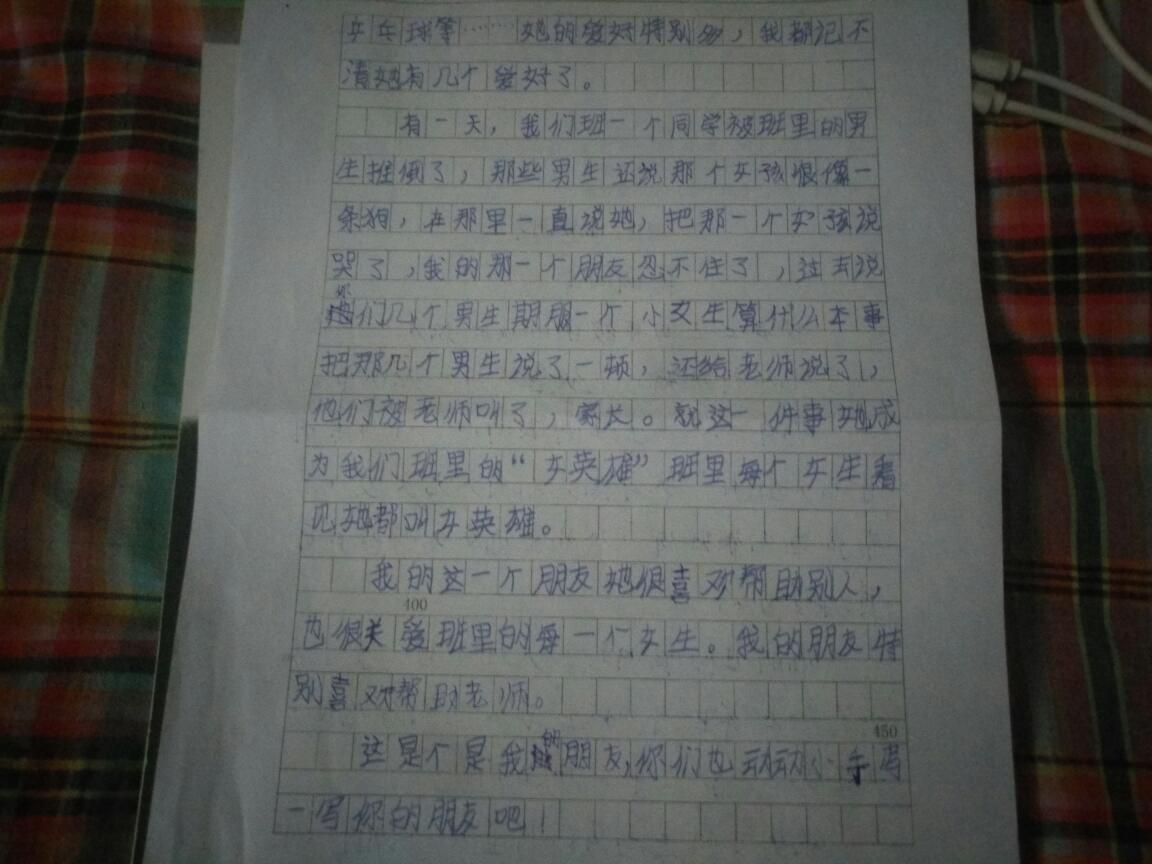 乒乓球等……她的爱好特别多，我都记不
清她有几个爱好了。
有一天，我们班一个同学被班里的男
生推倒了，那些男生还说那个女孩很像一
条狗，在那里一直说她，把那一个女孩说
哭了，我的那一个朋友忍不住了，过去说
你们几个男生期朋一个小女生算什么本事
把那几个男生说了一顿，还给老师说了，
他们被老师叫了，家长。就这一件事她成
为我们班里的“女英雄”班里每个女生看
见她都叫女英雄。
我的这一个朋友她很喜欢帮助别人，
400
也很关爱班里的每一个女生。我的朋友特
别喜欢帮助老师。
450
这是个是我的朋友，你们也动动小手写
一写你的朋友吧！